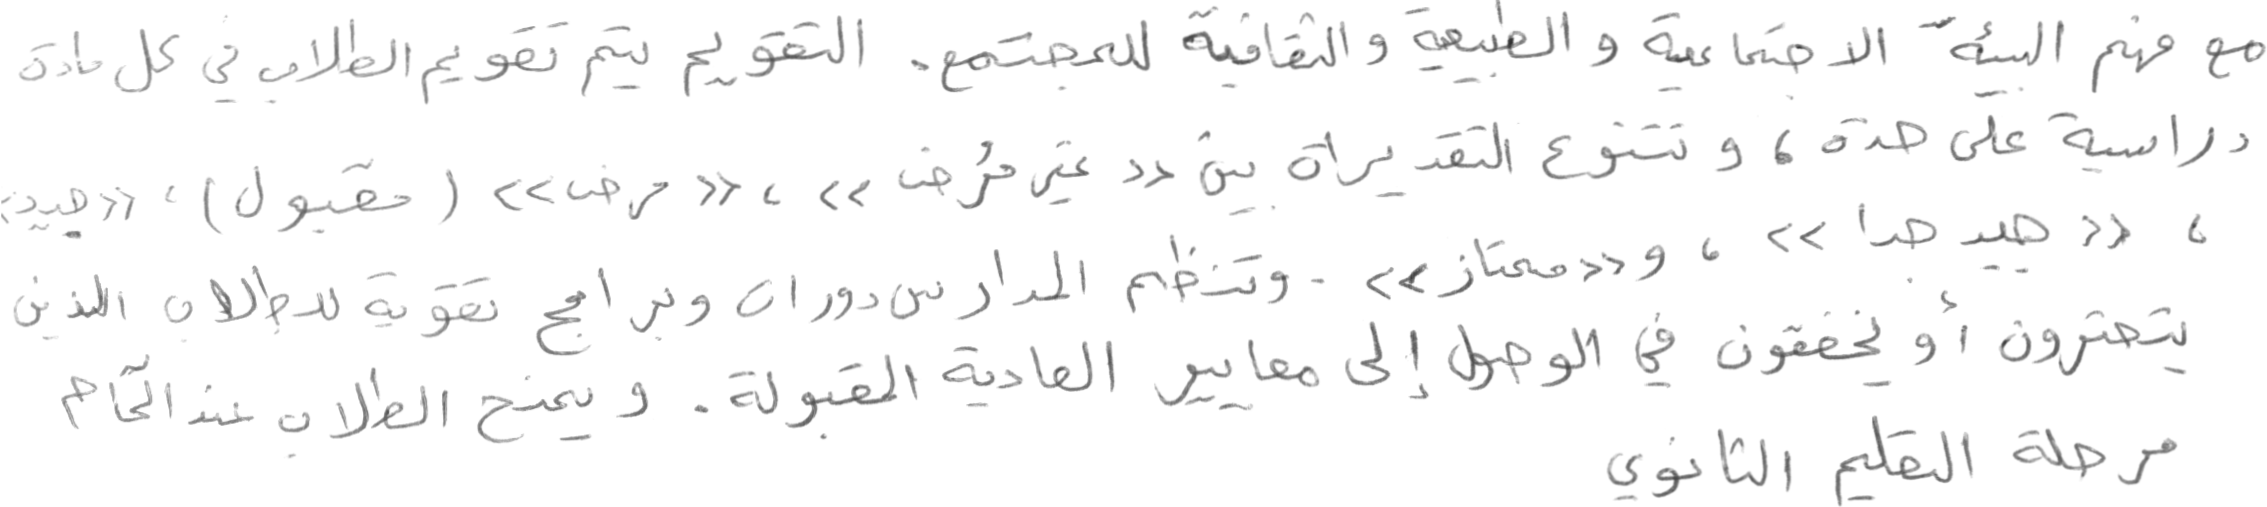 مع فهم البيئة الاجتماعية والطبيعية والثقافية للمجتمع. التقويم يتم تقويم الطلاب في كل مادة
دراسية على حدة، وتتنوع التقديرات بين «غير مُرض»، «مرض» (مقبول)، «جيد»
، «جيد جدا»، و«ممتاز». وتنظم المدارس دورات وبرامج تقوية للطلاب الذين
يتعثرون أو يخفقون في الوصول إلى معايير العادية المقبولة. ويمنح الطلاب عند اتمام
مرحلة التعليم الثانوي